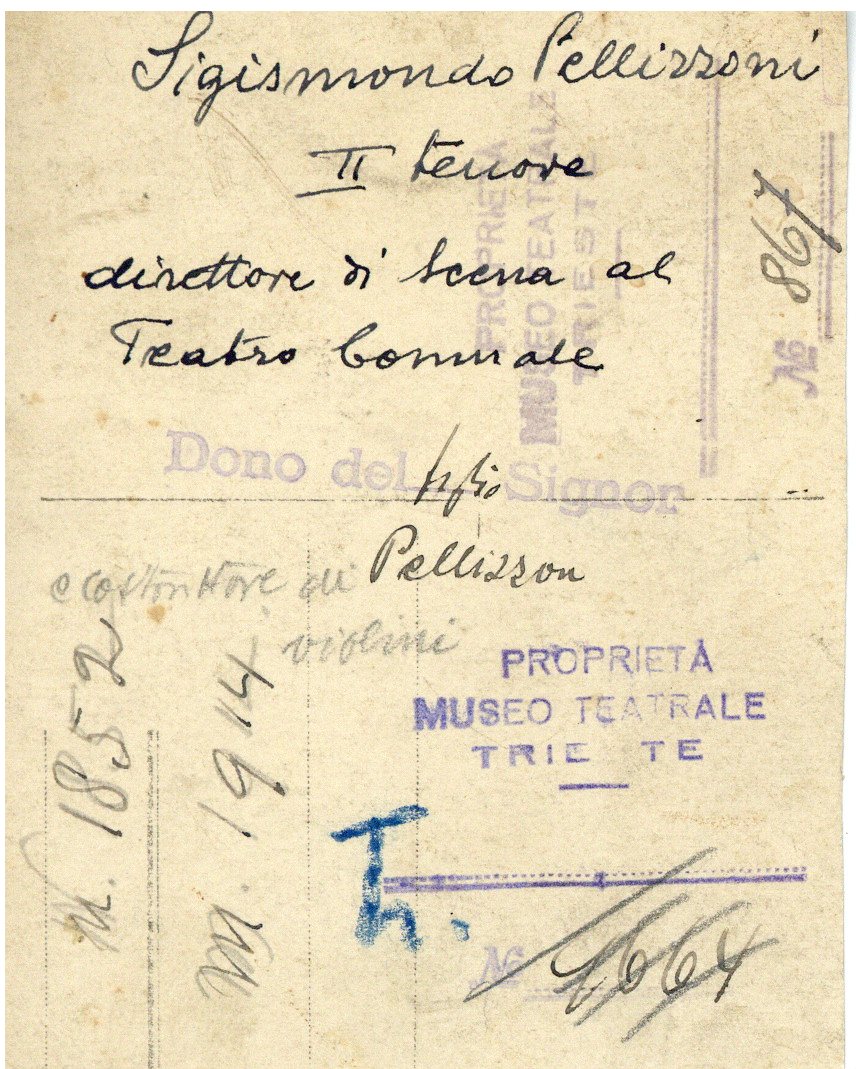 Sigismondo Pellizzoni
II tenore
direttore di scena al
Teatro Comunale
PROPRIETÀ
MUSEO TEATRALE
TRIESTE
№ 867
Dono del figlio Signor
Pellizzon
e costruttore di
violini
n. 1852
m. 1914
PROPRIETÀ
MUSEO TEATRALE
TRIE TE
№ 1664